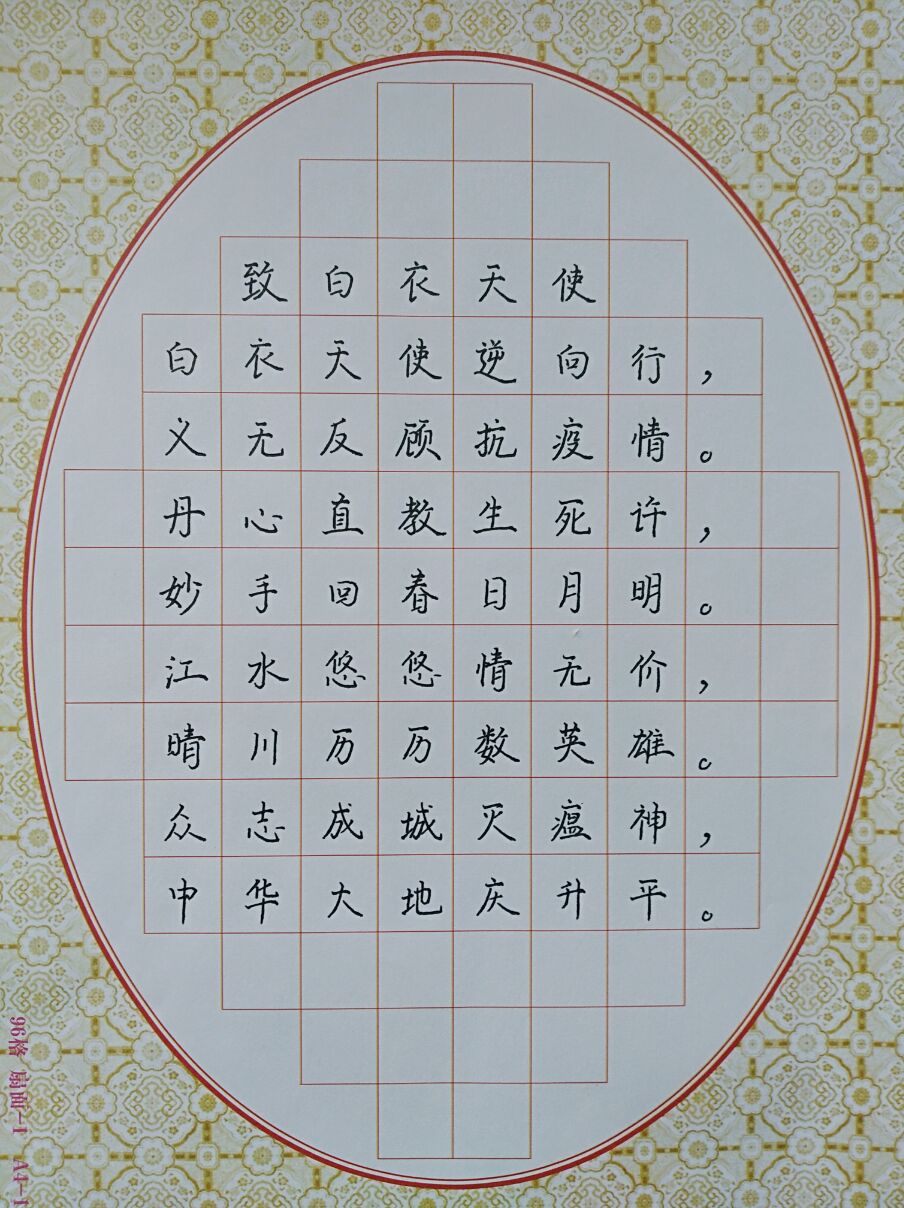 致白衣天使
白衣天使逆向行，
义无反顾抗疫情。
丹心直教生死许，
妙手回春日月明。
江水悠悠情无价，
晴川历历数英雄。
众志成城灭瘟神，
中华大地庆升平。
96格 扇面-1 A4-1